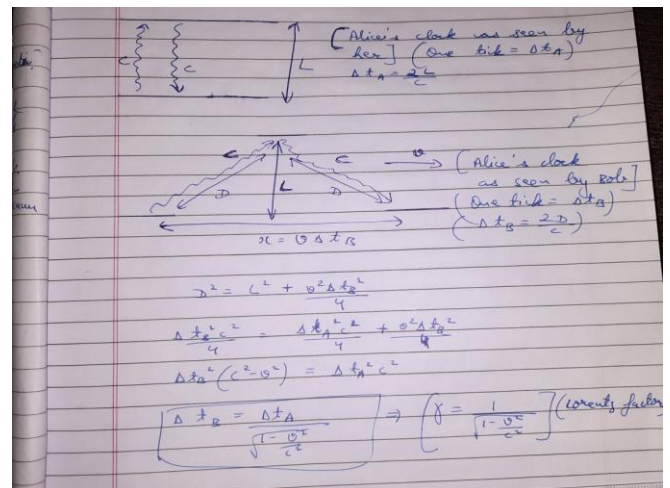 [Alice's clock as seen by
her] (One tick = Δt_A)
Δt_A = 2L/c
c
c
L
c
c
v
D
L
D
[Alice's clock
as seen by Bob]
(One tick = Δt_B)
(Δt_B = 2D/c)
x = vΔt_B
D² = L² + v²Δt_B²/4
Δt_B²c²/4 = Δt_A²c²/4 + v²Δt_B²/4
Δt_B²(c²-v²) = Δt_A²c²
Δt_B = Δt_A/√(1-v²/c²) ⇒ [γ = 1/√(1-v²/c²)] (Lorentz factor